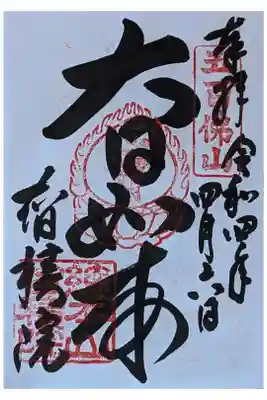 奉拝
五百佛山
令和四年
四月六日
大日如来
智積院